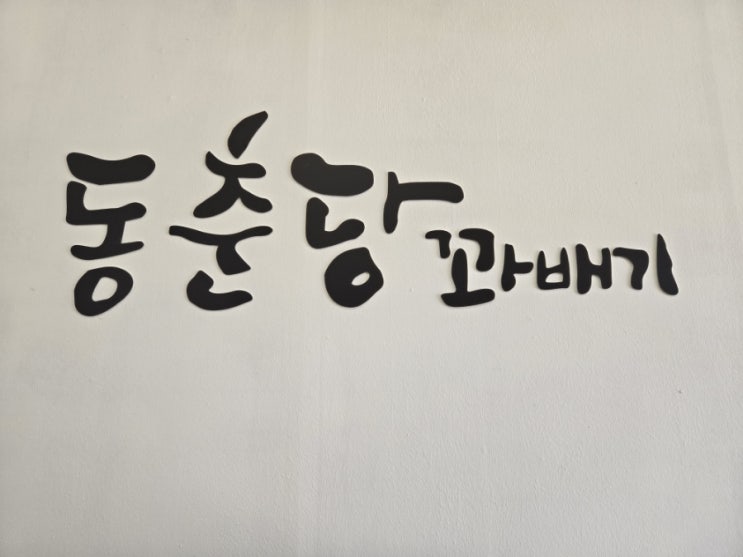 동춘당 꽈배기